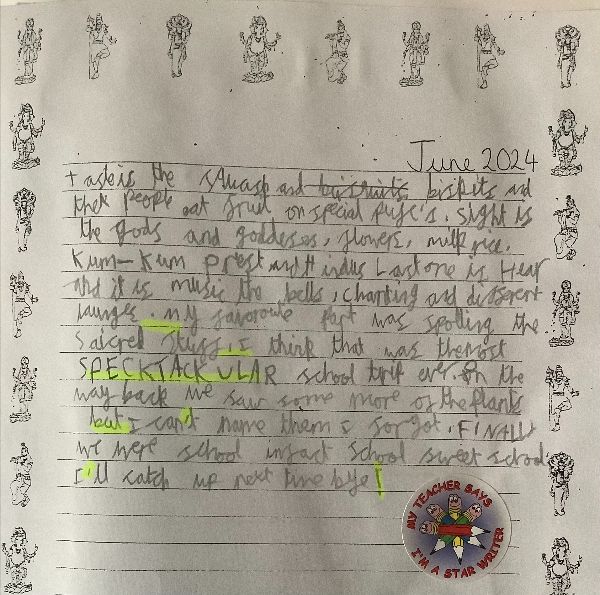 June 2024
taste is the squash and biscuits briskits and
thek people eat fruit on special pujc's. sight is
the gods and goddesses, flowers, milk rice,
Kum-Kum priest and Hindus Last one is Hear
and it is music the bells, chanting and different
launges. my favoroute part was spotting the
saicred stuff. I think that was the most
SPECKTACKULAR school trip ever. On the
way back we saw some more of the plants
but I can't name them I forgot. FINALLY
we were school infact School sweet school
I'll catch up next time bye!
MY TEACHER SAYS
I'M A STAR WRITER